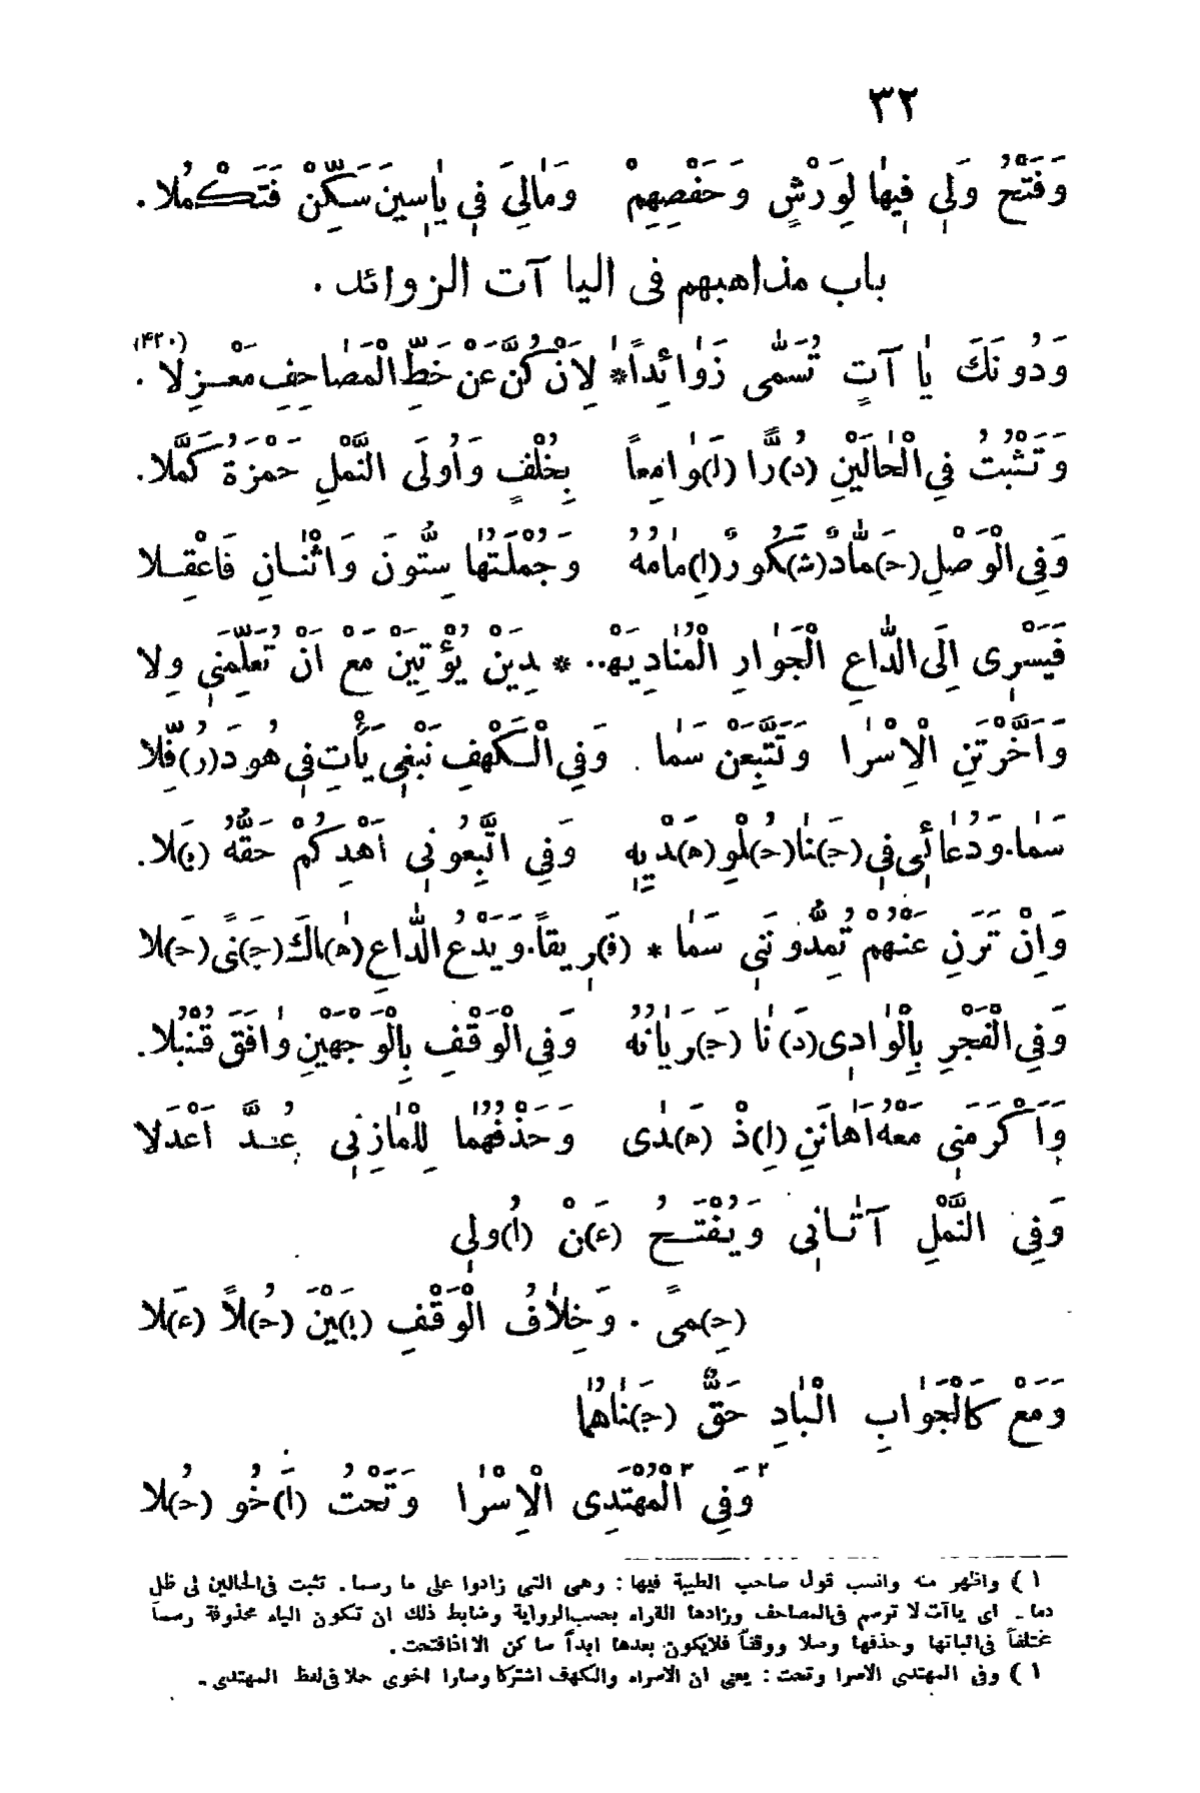 ٣٢
وَفَتْحُ وَلِي فِيهَا لِوَرْشٍ وَحَفْصِهِمْ وَمَالِيَ فِي يَاسِينَ سَكِّنْ فَتَكْمُلَا .
باب مذاهبهم فى اليا آت الزوائد .
وَدُونَكَ يَا آتٍ تُسَمَّى زَوَائِدًا * لِاَنْ كُنَّ عَنْ خَطِّ الْمَصَاحِفِ مَعْزِلَا . (٤٢٠)
وَتَثْبُتُ فِي الْحَالَيْنِ (دُ)رًّا (لَ)وَامِعاً بِخُلْفٍ وَاُولَى النَّمْلِ حَمْزَةُ كَمَّلَا .
وَفِي الْوَصْلِ (حَ)مَّادٌ (شَ)كُورٌ (اِ)مَامُهُ وَجُمْلَتُهَا سِتُّونَ وَاثْنَانِ فَاعْقِلَا
فَيَسْرِى اِلَى الدَّاعِ الْجَوَارِ الْمُنَادِيَهْ.. * دِيَنْ يُؤْتِيَنْ مَعْ اَنْ تُعَلِّمَنِي وِلَا
وَاَخَّرْتَنِ الْاِسْرَا وَتَتَّبِعَنْ سَمَا . وَفِي الْكَهْفِ نَبْغِي يَأْتِ فِي هُودَ (رُ)فِّلَا
سَمَا . وَدُعَائِي فِي (جَ)نَا (حُ)لْوِ (هَ)دْيِهِ وَفِي اتَّبِعُونِي اَهْدِكُمْ حَقُّهُ (بَ)لَا .
وَاِنْ تَرَنِ عَنْهُمْ تُمِدُّونَنِي سَمَا * (فَ)رِيقاً . وَيَدْعُ الدَّاعِ (هَ)اكَ (جَ)نًى (حَ)لَا
وَفِي الْفَجْرِ بِالْوَادِى (دَ)نَا (جَ)رَيَانُهُ وَفِي الْوَقْفِ بِالْوَجْهَيْنِ وَافَقَ قُنْبُلَا .
وَاَكْرَمَنِي مَعْهُ اَهَانَنِ (اِ)ذْ (هَ)دَى وَحَذْفُهُمَا لِلْمَازِنِي عُدَّ اَعْدَلَا
وَفِي النَّمْلِ آتَانِي وَيُفْتَحُ (عَ)نْ (اُ)ولِي
(حِ)مىً . وَخِلَافُ الْوَقْفِ (بَ)يْنَ (حُ)لاً (عَ)لَا
وَمَعْ كَالْجَوَابِ الْبَادِ حَقٌّ (جَ)نَاهُمَا
٢ وَفِي ٢ الْمُهْتَدِى الْاِسْرَا وَتَحْتُ (اَ)خُو (حُ)لَا
١ ) واظهر منه وانسب قول صاحب الطيبة فيها : وهى التى زادوا على ما رسما . تثبت فى الحالين لى ظل
دما ـ اى يا آت لا ترسم فى المصاحف وزادها القراء بحسب الرواية وضابط ذلك ان تكون الياء محذوفة رسماً
مختلفاً فى اثباتها وحذفها وصلا ووقفاً فلا يكون بعدها ابداً ساكن الا اذا فتحت .
١ ) وفى المهتدى الاسرا وتحت : يعنى ان الاسراء والكهف اشتركا وصارا اخوى حلا فى لفظ المهتدى ـ